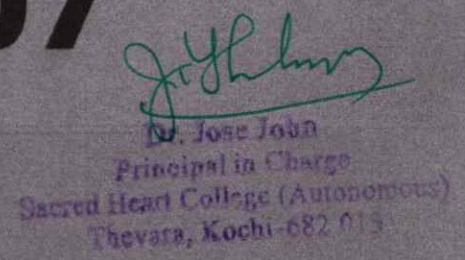 07
Dr. Jose John
Principal in Charge
Sacred Heart College (Autonomous)
Thevara, Kochi-682 013